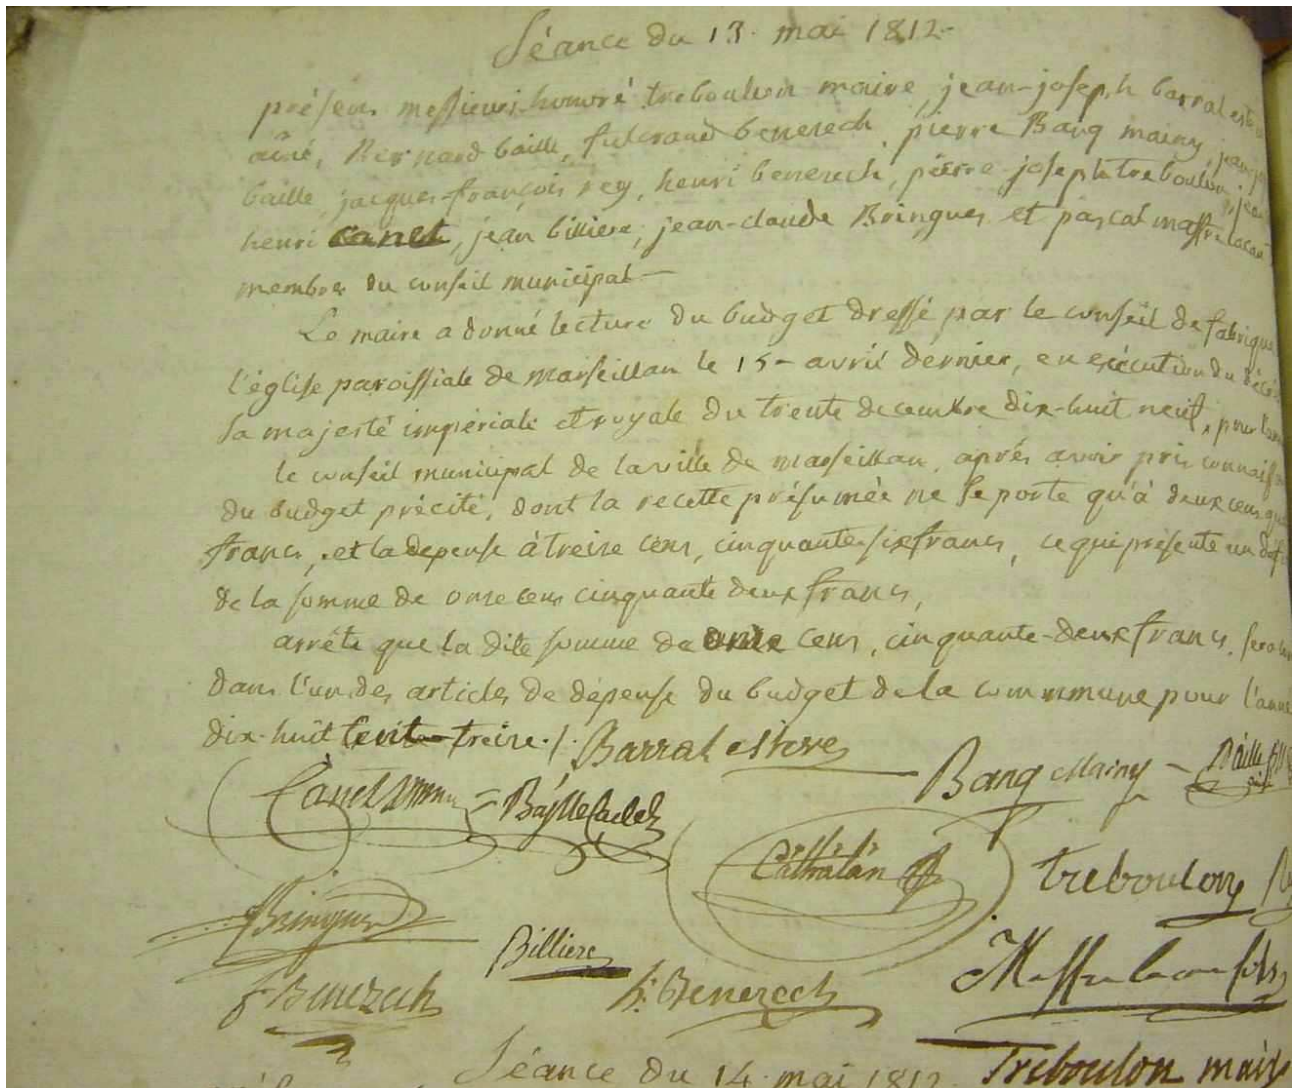 Séance du 13. mai 1812.-
présens messieurs honoré treboulon maire, jean-joseph barral
ainé, Bernard baille, fulcrand benezech, pierre Banq mainy,
baille, jacques-françois rey, henri benezech, pierre-joseph treboulon, jean
henri Canet, jean billiere, jean-claude Bringues, et pascal maffre lacan
membres du conseil municipal-
Le maire a donné lecture du budget dressé par le conseil de fabrique
l'église paroissiale de marseillan le 15- avril dernier, en exécution du
sa majesté impériale et royale du trente decembre dix-huit neuf, pour
le conseil municipal de la ville de marseillan, aprés avoir pris
du budget précité, dont la recette présumée ne se porte qu'à deux cens
francs, et la depense à treize cens, cinquante-six francs, ce qui présente un
de la somme de onze cens cinquante deux francs,
arrête que la dite somme de onze cens, cinquante-deux francs, sera
dans l'un des articles de dépense du budget de la commmune pour
dix-huit cent-treize./. Barral esteve
Banq Mainy - Baille
Canet = Baylle Cadet
Cathalan
treboulon
Bringues
Billiere
Maffre lacan fils
f Benezech
h: Benezech
Séance du 14. mai 1812. Treboulon maire